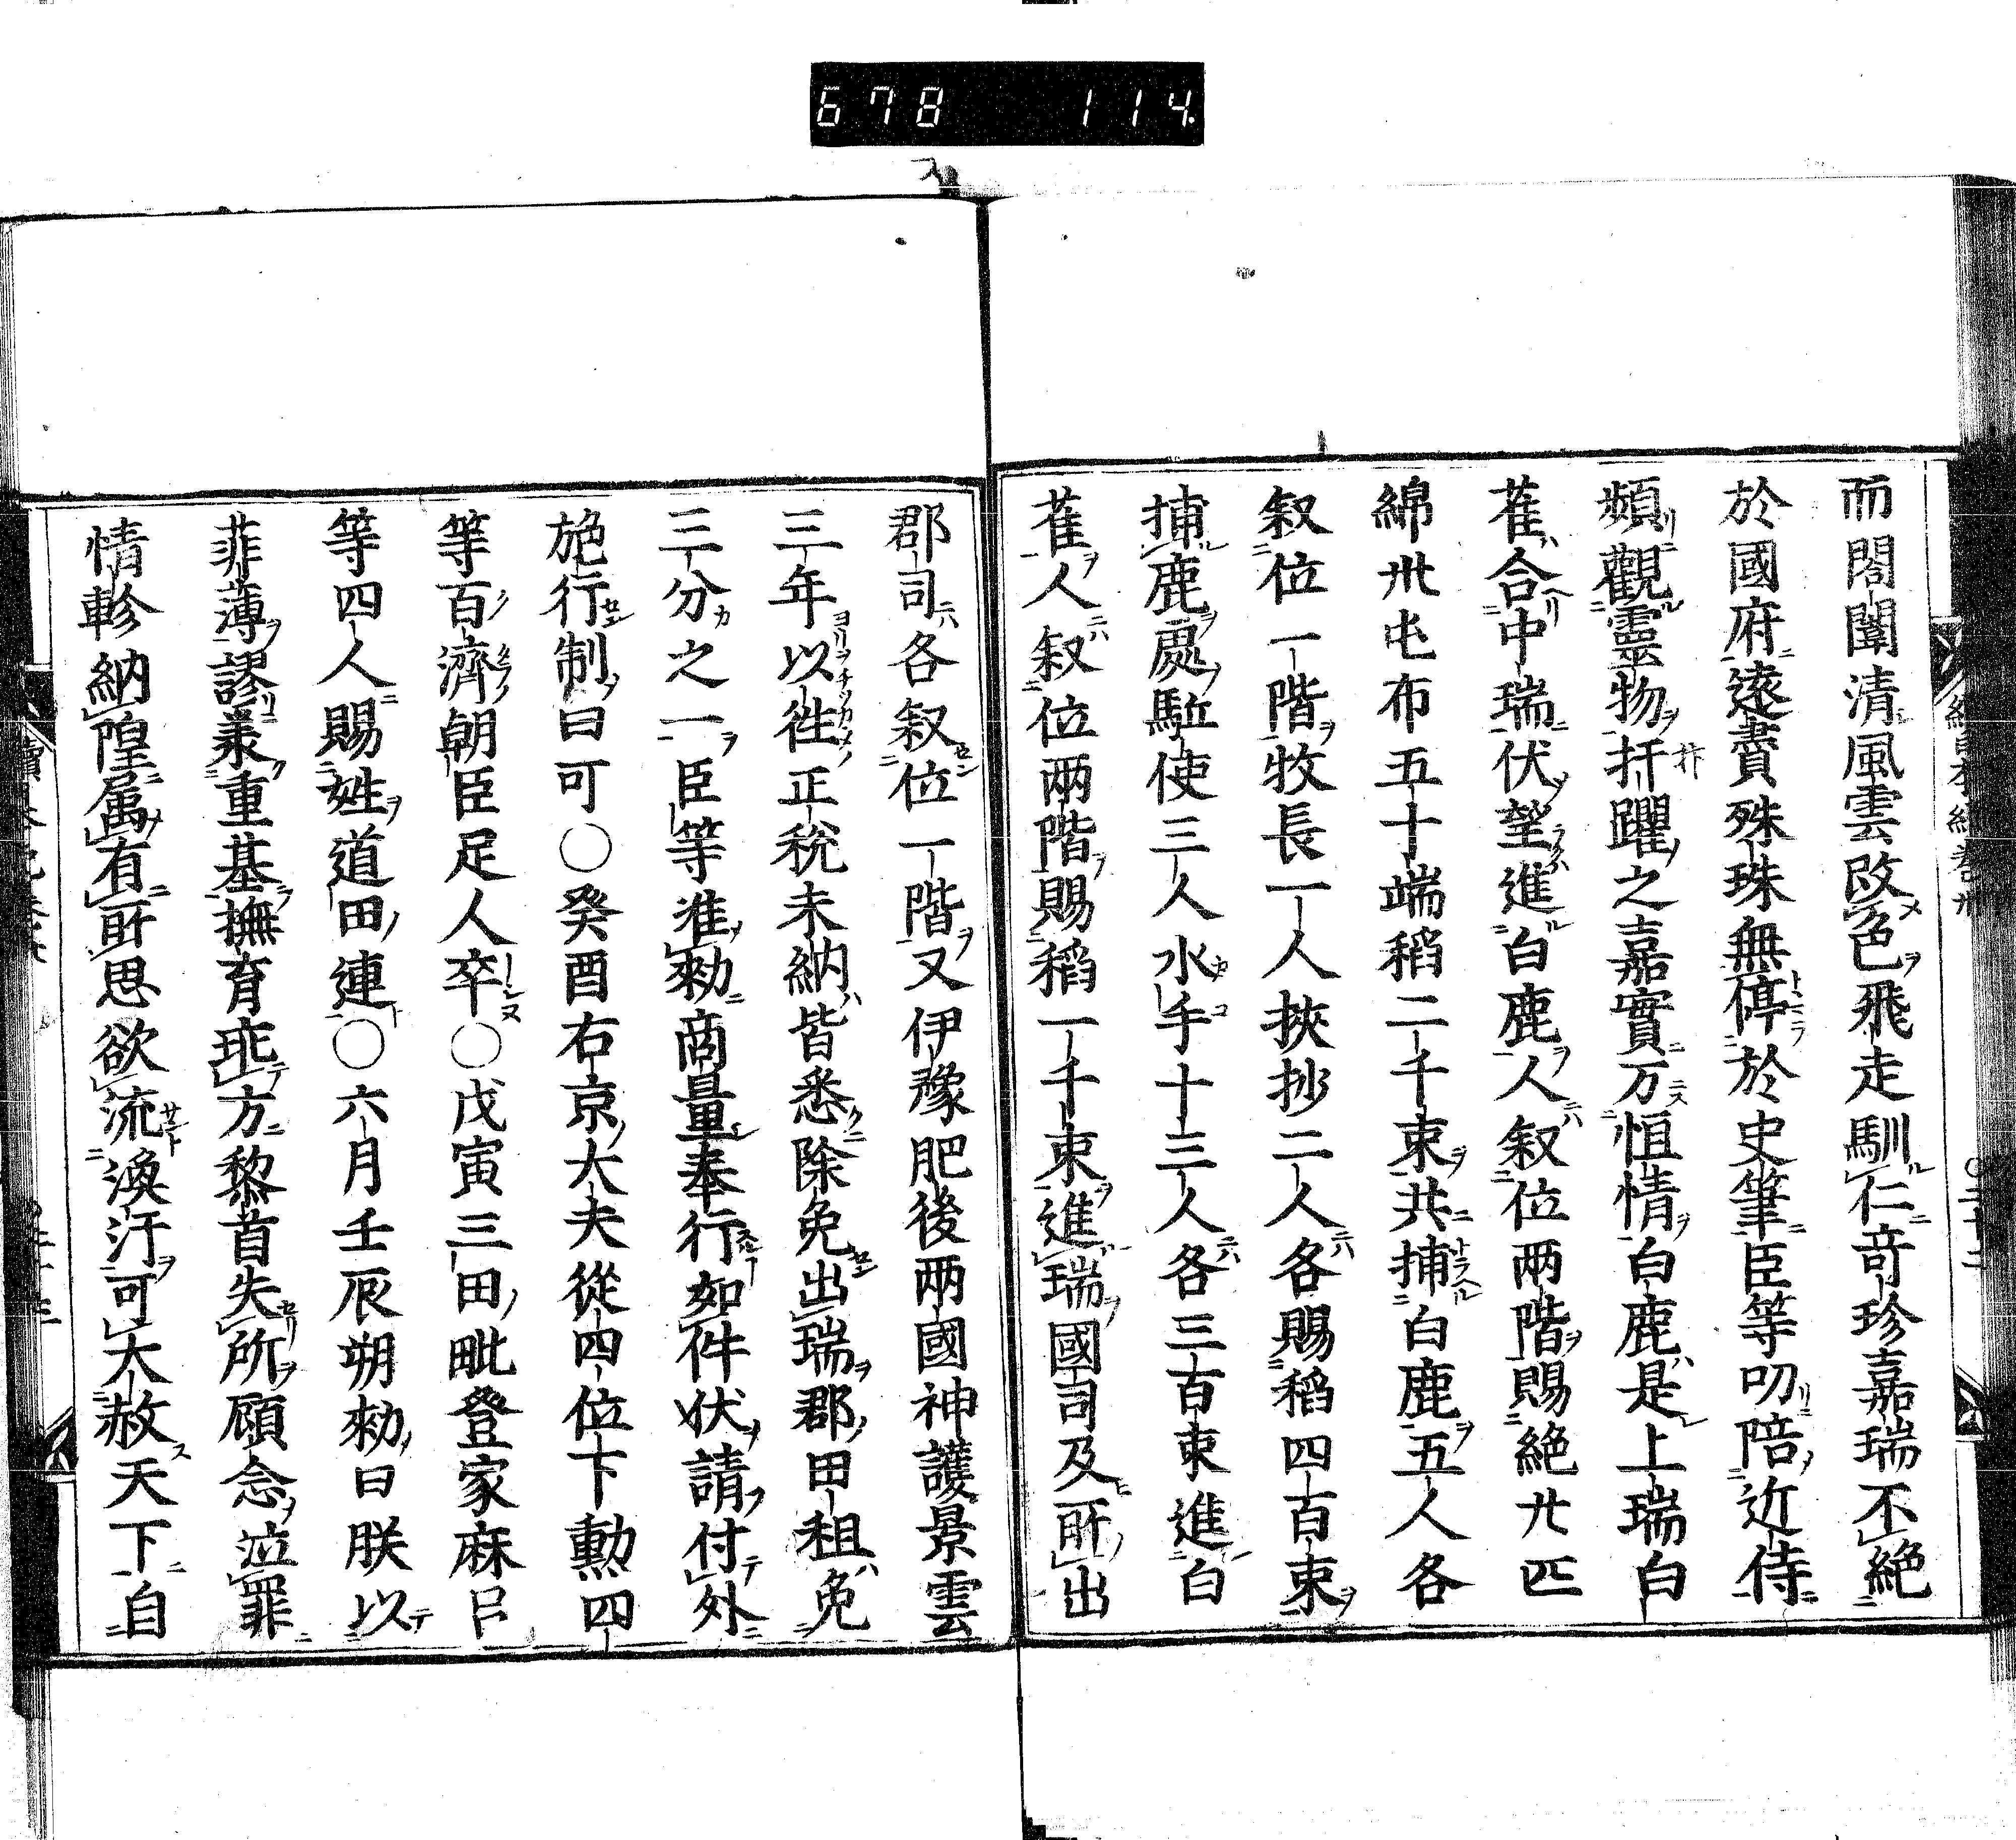 678 114
而閤闈清風雲改色飛走馴仁奇珍嘉瑞不絶
於國府遠賮殊珠無停於史筆臣等叨陪近侍
頻觀靈物抃躍之嘉實万恒情白鹿是上瑞白
雀合中瑞伏望進白鹿人叙位兩階賜絁廾匹
綿卅屯布五十端稻二千束共捕白鹿五人各
叙位一階牧長一人挾抄二人各賜稻四百束
捕鹿處駈使三人水手十三人各三百束進白
雀人叙位兩階賜稻一千束進瑞國司及所出
郡司各叙位一階又伊豫肥後兩國神護景雲
三年以徃正税未納皆悉除免出瑞郡田租免
三分之一臣等准勑商量奉行如件伏請付外
施行制曰可○癸酉右京大夫從四位下勳四
等百濟朝臣足人卒○戊寅三田毗登家麻呂
等四人賜姓道田連○六月壬辰朔勑曰朕以
菲薄謬羕重基撫育乖方黎首失所顧念泣罪
情軫納隍属有所思欲流渙汗可大赦天下自